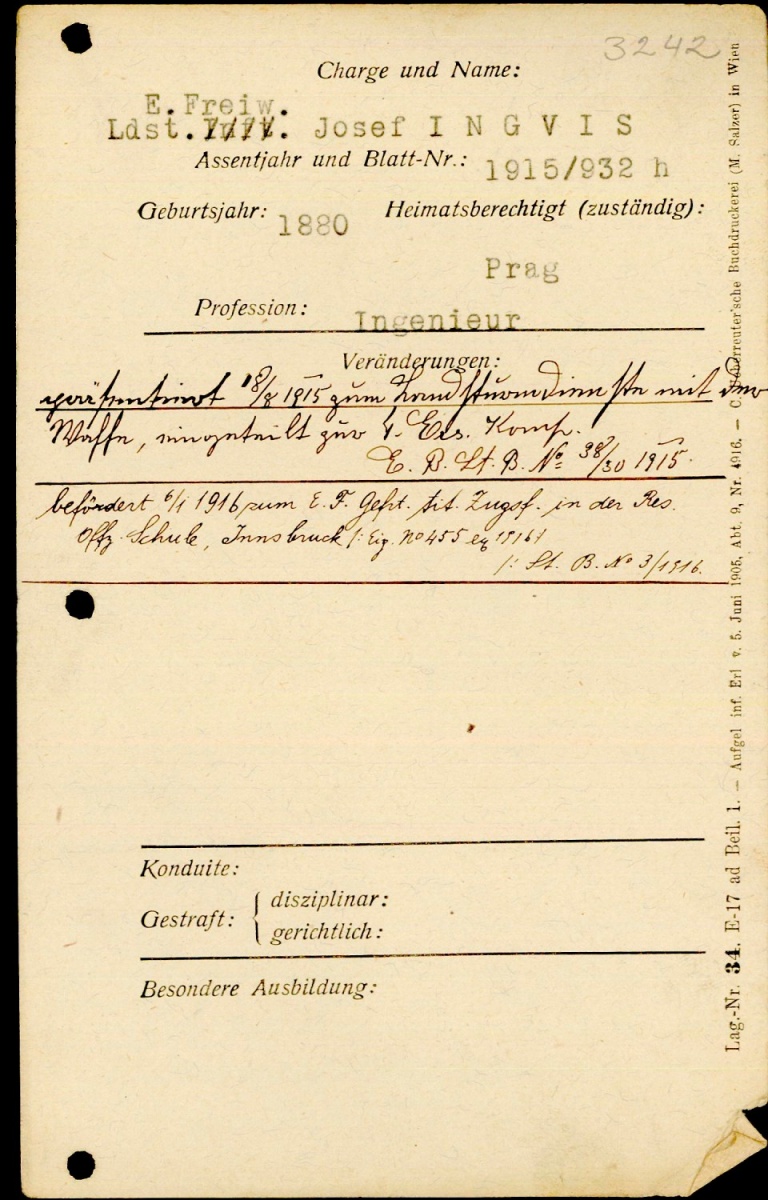 3242
Charge und Name:
E. Freiw.
Ldst. Inft. Josef I N G V I S
Assentjahr und Blatt-Nr.: 1915/932 h
Geburtsjahr: 1880 Heimatsberechtigt (zuständig):
Prag
Profession: Ingenieur
Veränderungen:
präsentiert 18/8 1915 zum Landsturmdienste mit der
Waffe, eingeteilt zur 4. Ers. Komp.
E. B. St. B. No 38/30 1915.
befördert 6/1 1916 zum E. F. Gefrt. tit. Zugsf. in der Res.
Offz. Schule, Innsbruck /: Eig. No 455 ex 1916 /
/: St. B. No 3/1916.
Konduite:
Gestraft: { disziplinar:
gerichtlich:
Besondere Ausbildung:
Lag.-Nr. 34. E-17 ad Beil. 1. — Aufgel inf. Erl v. 5. Juni 1905, Abt. 9, Nr. 4916. — C. Scherreuter'sche Buchdruckerei (M. Salzer) in Wien